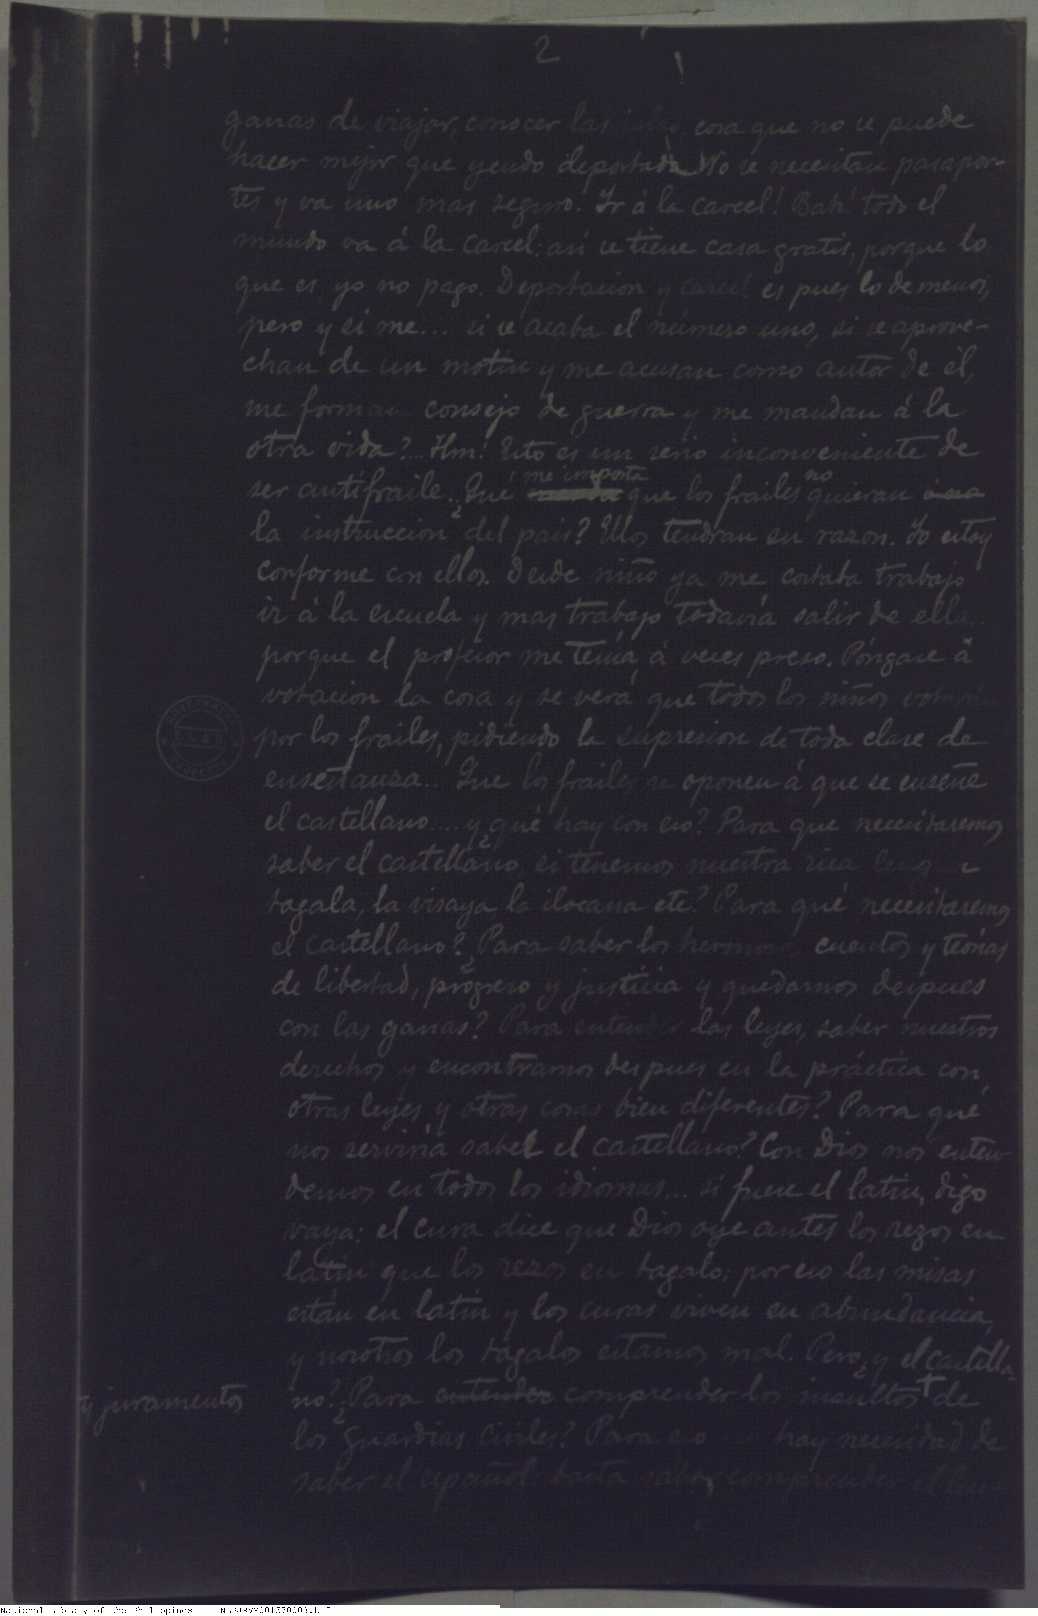 2
ganas de viajar, conocer las islas, cosa que no se puede
hacer mejor que yendo deportado. No se necesitan pasapor-
tes y va uno mas seguro. Ir á la carcel! Bah! todo el
mundo va á la carcel: así se tiene casa gratis, porque lo
que es yo no pago. Deportacion y carcel es pues lo de menos,
pero y si me... si se acaba el número uno, si se aprove-
chan de un motin y me acusan como autor de él,
me forman consejo de guerra y me mandan á la
otra vida?... Hm! Esto es un serio inconveniente de
ser antifraile. ¿Que me importa que los frailes no quieran
la instruccion del pais? Ellos tendran su razon. Yo estoy
conforme con ellos. Desde niño ya me costaba trabajo
ir á la escuela y mas trabajo todavía salir de ella..
porque el profesor me tenía á veces preso. Póngase á
votacion la cosa y se verá que todos los niños votarán
por los frailes, pidiendo la supresion de toda clase de
enseñanza... Que los frailes se oponen á que se enseñe
el castellano.... y ¿qué hay con eso? Para que necesitaremos
saber el castellano, si tenemos nuestra rica lengua
tagala, la visaya, la ilocana etc? Para qué necesitaremos
el castellano? ¿Para saber los hermosos cuentos y teorías
de libertad, progreso y justicia y quedarnos despues
con las ganas? Para entender las leyes, saber nuestros
derechos y encontrarnos despues en la práctica con
otras leyes y otras cosas bien diferentes? Para qué
nos serviría saber el castellano? Con Dios nos enten-
demos en todos los idiomas... si fuese el latin, digo
vaya: el cura dice que Dios oye antes los rezos en
latin que los rezos en tagalo; por eso las misas
están en latin y los curas viven en abundancia,
y nosotros los tagalos estamos mal. Pero ¿y el castella-
no? ¿Para entender comprender los insultos + de
y juramentos
los guardias civiles? Para eso no hay necesidad de
saber el español: basta saber comprender el len-
National Library of the Philippines